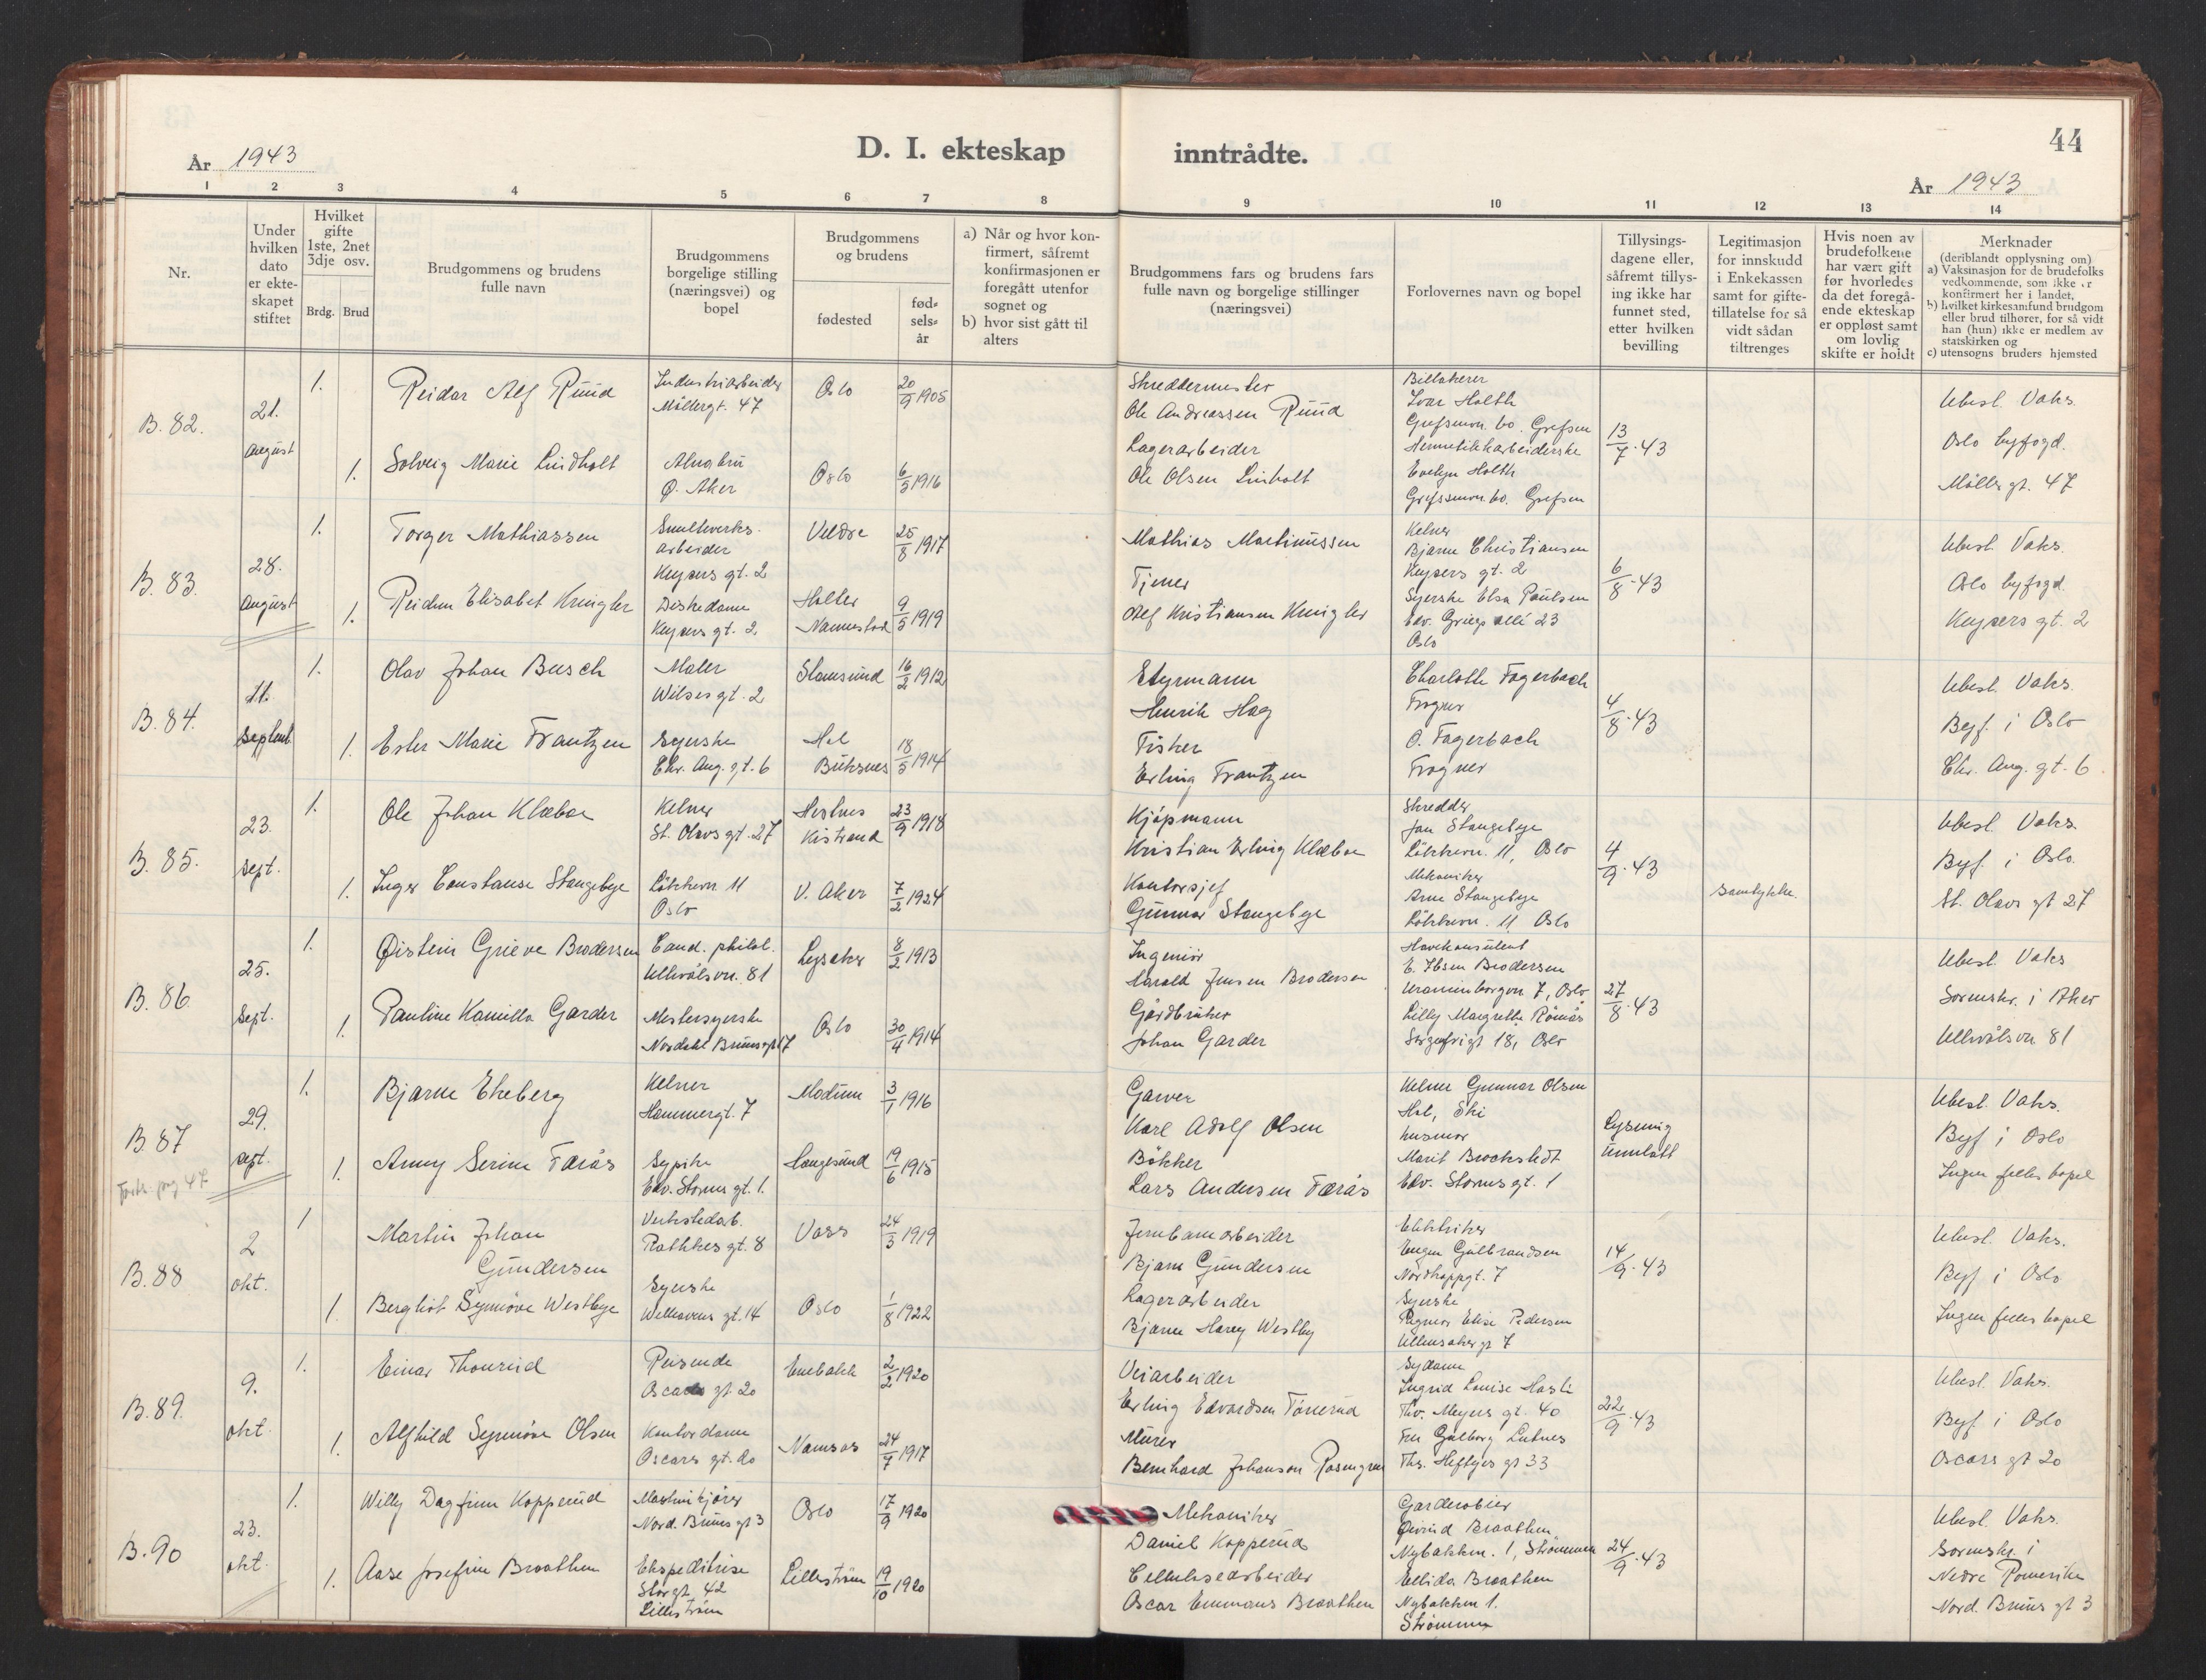 44
D. I. ekteskap inntrådte.
År 1943
År 1943
1 2 3 4 5 6 7 8 9 10 11 12 13 14
Nr.
Under hvilken dato er ekteskapet stiftet
Hvilket gifte 1ste, 2net 3dje osv.
Brdg. Brud
Brudgommens og brudens fulle navn
Brudgommens borgelige stilling (næringsvei) og bopel
Brudgommens og brudens
fødested
fødselsår
a) Når og hvor konfirmert, såfremt konfirmasjonen er foregått utenfor sognet og
b) hvor sist gått til alters
Brudgommens fars og brudens fars fulle navn og borgelige stillinger (næringsvei)
Forlovernes navn og bopel
Tillysingsdagene eller, såfremt tillysing ikke har funnet sted, etter hvilken bevilling
Legitimasjon for innskudd i Enkekassen samt for giftetillatelse for så vidt sådan tiltrenges
Hvis noen av brudefolkene har vært gift før hvorledes da det foregående ekteskap er oppløst samt om lovlig skifte er holdt
Merknader
(deriblandt opplysning om)
a) Vaksinasjon for de brudefolks vedkommende, som ikke er konfirmert her i landet,
b) hvilket kirkesamfund brudgom eller brud tilhører, for så vidt han (hun) ikke er medlem av statskirken og
c) utensogns bruders hjemsted
B. 82.
21. August
1.
Reidar Alf Ruud
Industriarbeider
Møllergt. 47
Oslo
20/9 1905
Skreddermester
Ole Andreassen Ruud
Billakerer
Ivar Holth
Grefsenvn. 60. Grefsen
13/7-43
Ubesl. Vaks.
Oslo byfogd.
Møllergt. 47
1.
Solveig Marie Lindholt
Alnabru
Ø. Aker
Oslo
6/5 1916
Lagerarbeider
Ole Olsen Linholt
Hermetikkarbeiderske
Evelyn Holth
Grefsenvn. 60. Grefsen
B. 83.
28. August
1.
Torger Mathiassen
Smelteverks-
arbeider
Keysers gt. 2
Veldre
25/8 1917
Mathias Martinussen
Kelner
Bjarne Christiansen
Keysers gt. 2
6/8-43
Ubesl. Vaks.
Oslo byfogd
Keysers gt. 2
1.
Reidun Elisabet Kringler
Diskedame
Keysers gt. 2.
Holter
Nannestad
9/5 1919
Tjener
Alf Kristiansen Kringler
Syerske Elsa Paulsen
Edv. Griegs allé 23
Oslo
B. 84.
11. Septemb.
1.
Olav Johan Busch
Maler
Wilses gt. 2
Stamsund
16/2 1912
Styrmann
Henrik Hag
Charlotte Fagerbach
Frogner
4/8-43
Ubesl. Vaks.
Byf. i Oslo
Chr. Aug. gt. 6.
1.
Ester Marie Frantzen
Syerske
Chr. Aug. gt. 6
Hol
Buksnes
18/5 1914
Fisker
Erling Frantzen
O. Fagerbach
Frogner
B. 85.
23. Sept.
1.
Ole Johan Klæboe
Kelner
St. Olavs gt. 27
Hestnes
Kistrand
23/9 1918
Kjøpmann
Kristian Erling Klæboe
Skredder
Jan Stangebye
Løkkevn. 11, Oslo
4/9-43
Ubesl. Vaks.
Byf. i Oslo.
St. Olavs gt 27
1.
Inger Constanse Stangebye
Løkkevn 11
Oslo
V. Aker
7/2 1924
Kontorsjef
Gunnar Stangebye
Mekaniker
Arne Stangebye
Løkkevn. 11 Oslo
Samtykke.
B. 86.
25. Sept.
1.
Øistein Grieve Brodersen
Cand. philol.
Ullevålsvn. 81
Lysaker
8/2 1913
Ingeniør
Harald Jensen Brodersen
Havekonsulent
E. Ibsen Brodersen
Uranienborgvn 7, Oslo
27/8-43
Ubesl. Vaks
Sorenskr. i Aker
Ullevålsvn 81
1.
Pauline Kamilla Garder
Mestersyerske
Nordahl Bruns gt 17
Oslo
30/4 1914
Gårdbruker
Johan Garder
Lilly Margrethe Rømås
Sorgenfrigt 18, Oslo
B. 87
Forts. pag 47
29. sept.
1.
Bjarne Ekeberg
Kelner
Hammergt. 7
Modum
3/1 1916
Garver
Karl Adolf Olsen
Kelner Gunnar Olsen
Hol, Ski
Lysning
unnlatt
Ubesl. Vaks.
Byf i Oslo
Ingen felles bopel
1.
Anny Serine Farås
Sypike
Edv. Storms gt. 1.
Haugesund
19/6 1915
Bøkker
Lars Andersen Færås
husmor
Marit Brockstedt
Edv. Storms gt. 1
B. 88
2 okt.
1
Martin Johan
Gundersen
Verkstedarb.
Rathkes gt. 8
Voss
24/3 1919
Jernbanearbeider
Bjarne Gundersen
Elektriker
Eugen Gulbrandsen
Nordkappgt. 7
14/9-43
Ubesl. Vaks.
Byf i Oslo
Ingen felles bopel
1.
Bergliot Synnøve Westbye
Syerske
Welhavens gt. 14
Oslo
1/8 1922
Lagerarbeider
Bjarne Harry Westby
Syerske
Ragnar Elise Pedersen
Ullensakergt 7
B. 89.
9. okt.
1.
Einar Thonrud
Reisende
Oscars gt 20
Enebakk
2/2 1920
Veiarbeider
Erling Edvardsen Tønnerud
Sydame
Ingrid Louise Hasli
Thv. Meyers gt. 40
22/9-43
Ubesl. Vaks.
Byf i Oslo
Oscars gt 20
1.
Alfhild Synnøve Olsen
Kontordame
Oscars gt. do
Namsos
24/7 1917
Murer
Bernhard Johanson Rosengren
Fru Gulborg Lutnes
Ths. Heftyes gt 33
B. 90
23. okt.
1.
Willy Dagfinn Kopperud
Maskinkjører
Nord. Bruns gt 3
Oslo
17/9 1920
Mekaniker
Daniel Kopperud
Garderobier
Øivind Braathen
Nybakken. 1, Strømmen
24/9-43
Ubesl. Vaks.
Sorenskr. i
Nedre Romerike
Nord. Bruns gt 3
1.
Aase Josefine Braathen
Ekspeditrise
Storgt. 42
Lillestrøm
Lillestrøm
19/10 1920
Cellulosearbeider
Oscar Emmanus Braathen
Ellida Braathen
Nybakken 1.
Strømmen